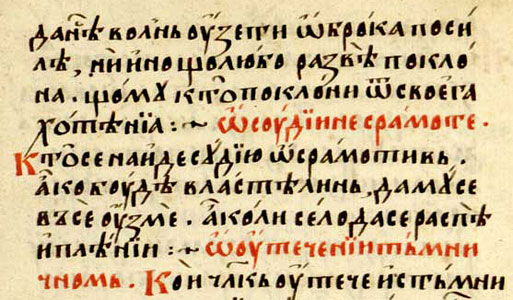 да нѣ волнь оузети ѡброка поси
лѣ, ни ино що любо развѣ покло
на. щомꙋ кто поклони ѿ своега
хотѣнїа :~ ѡ соудїи не срамоте.
Кто се наиде сꙋдїю ѡсрамотивь.
ако боудѣ властѣлинь, да мꙋ се
въсе оузме. а коли сѣло да се распѣ
и плѣнїи :~ ѡ оутеченїи тьмни
чномь. Кои чл҃къ оутече ис тьмни